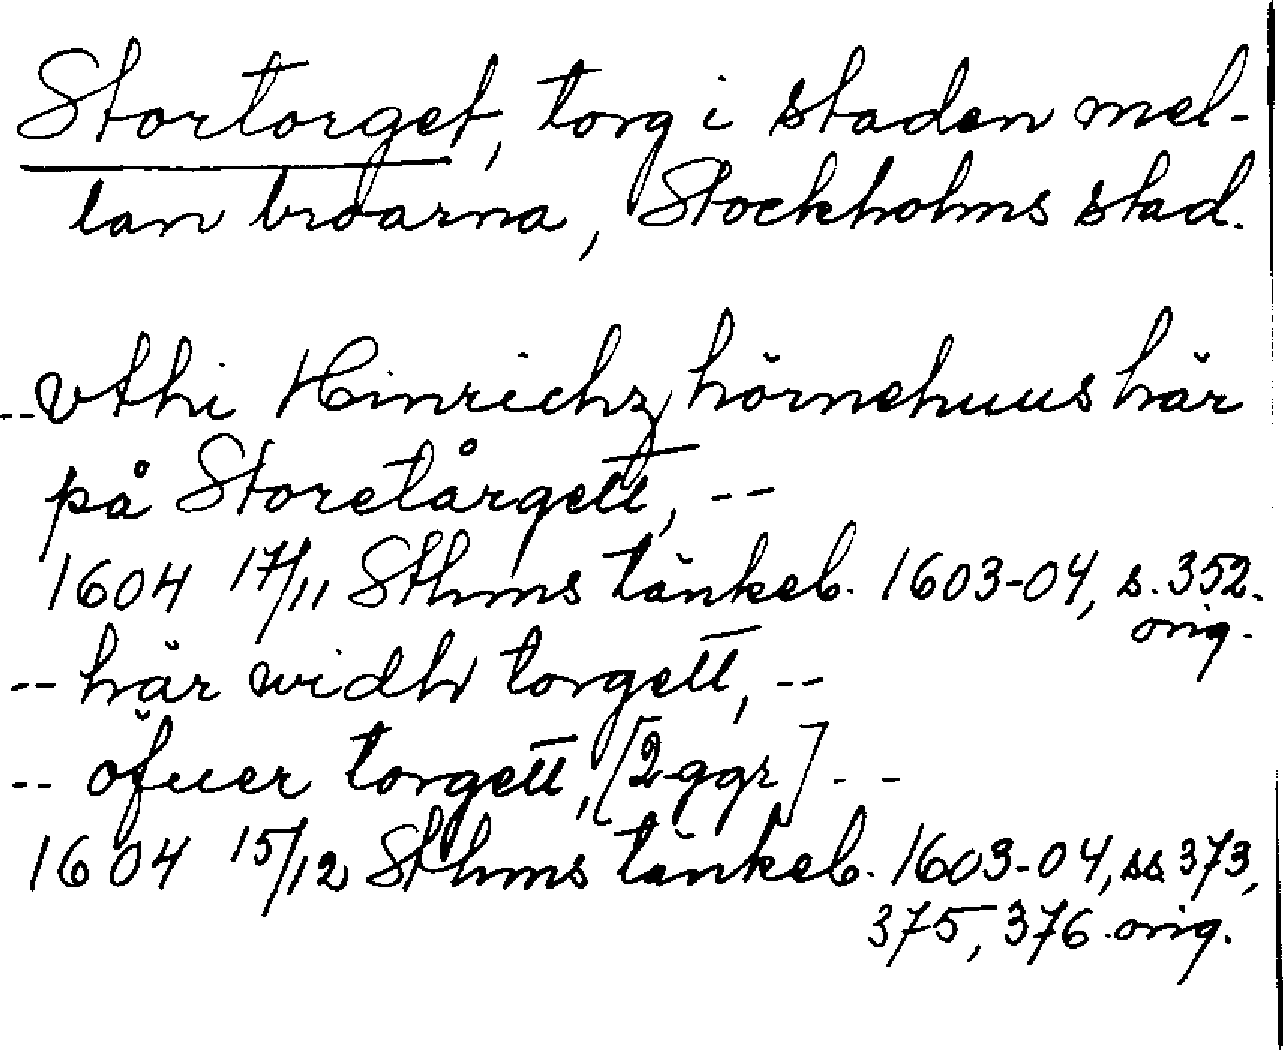 Stortorget, torg i staden mel-
lan broarna, Stockholms stad.
-- vthi Hinrichz hörnehuus här
på Storetårgett, --
1604 17/11 Sthms tänkeb. 1603-04, s. 352.
orig.
-- här widh torgett, --
-- öfuer torgett, [2 ggr] - -
1604 15/12 Sthms tänkeb. 1603-04, ss 373,
375, 376. orig.